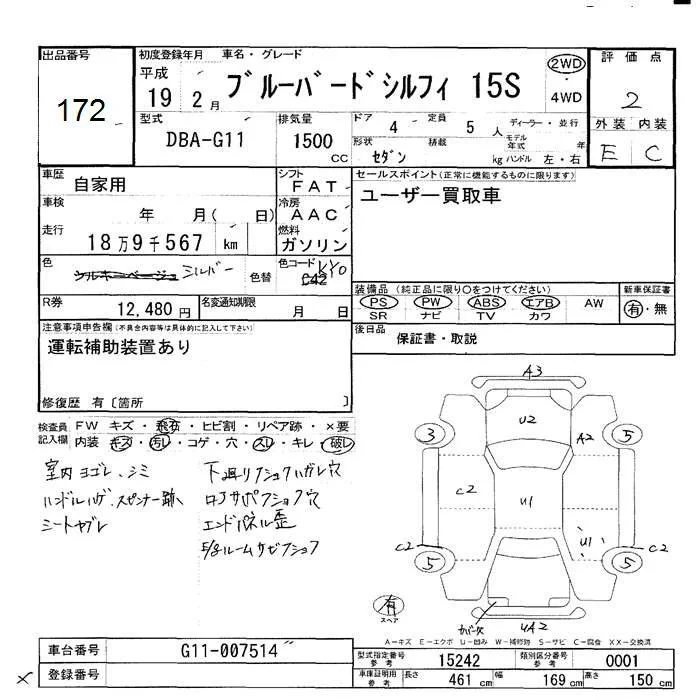 出品番号
172
初度登録年月
平成
19 2 月
車名・グレード
ブルーバードシルフィ 15S
2WD
4WD
評価点
2
外装 内装
E C
型式
DBA-G11
排気量
1500 cc
ドア 4
定員 5 人
ディーラー・並行
形状 セダン
積載 kg
モデル年式 年
ハンドル 左・右
車歴
自家用
シフト
FAT
セールスポイント(正常に機能するものに限ります)
ユーザー買取車
車検
年 月( 日)
冷房
AAC
走行
18万9千567 km
燃料
ガソリン
色
シルキーベージュ シルバー
色替
色コード
C42 KY0
装備品(純正品に限り○をつけてください)
PS PW ABS エアB AW
SR ナビ TV カワ
新車保証書
有・無
R券
12,480 円
名変通知期限
月 日
後日品
保証書・取説
注意事項申告欄(不具合内容等は具体的に記入して下さい)
運転補助装置あり
修復歴 有〔箇所 〕
検査員記入欄
FW キズ・飛石・ヒビ割・リペア跡・×要
内装 キズ・汚レ・コゲ・穴・スレ・キレ・破レ
室内ヨゴレ、シミ
ハンドルハゲ、スピンナー跡、
シートヤブレ
下廻リフショクハガレ穴
ロアサポフショク穴
エンドパネル歪
E/gルームサビフショク
A3
U2
3
A2
5
C2
U1
U1
C2
5
5
C2
有
スペア
カバーズ
UA2
A-キズ E-エクボ U-凹み W-補修跡 S-サビ C-腐食 XX-交換済
車台番号
G11-007514
登録番号
×
型式指定番号
参考
15242
類別区分番号
参考
0001
車庫証明用
参考
長さ 461 cm
幅 169 cm
高さ 150 cm